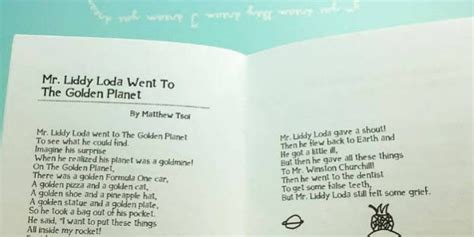 Mr. Liddy Loda Went To
The Golden Planet
By Matthew Tsoi
Mr. Liddy Loda went to The Golden Planet
To see what he could find.
Imagine his surprise
When he realized his planet was a goldmine!
On The Golden Planet,
There was a golden Formula One car,
A golden pizza and a golden cat,
A golden shoe and a pineapple hat,
A golden statue and a golden plate,
So he took a bag out of his pocket.
He said, "I want to put these things
All inside my rocket!
Mr. Liddy Loda gave a shout!
Then he flew back to Earth and
He got a little ill,
But then he gave all these things
To Mr. Winston Churchill!
Then he went to the dentist
To get some false teeth,
But Mr. Liddy Loda still felt some grief.